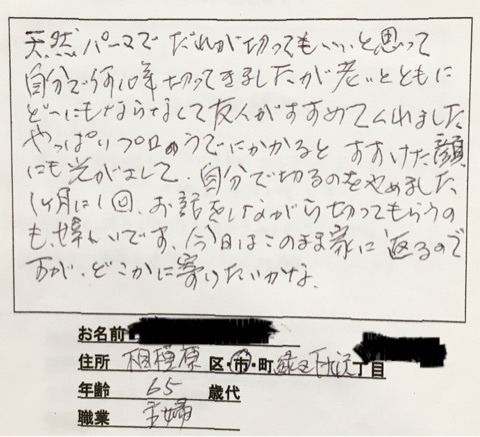 天然パーマで だれが切ってもいいと思って
自分で何10年切ってきましたが老いとともに
どーにもならなくて友人がすすめてくれました
やっぱりプロのうでにかかると すすけた顔
にも光がさして、自分で切るのをやめました
1ヶ月に1回、お話をしながら切ってもらうの
も、嬉しいです、今日はこのまま家に返るので
すが、どこかに寄りたいかな、
お名前
住所 相模原 区・市・町 緑区下九沢 丁目
年齢 65 歳代
職業 主婦